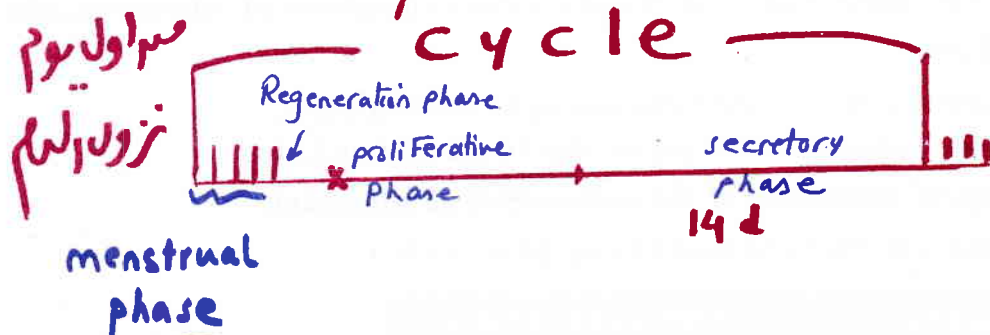 cycle
من اول يوم
نزول الدم
Regeneration phase
proliferative
phase
secretory
phase
14 d
menstrual
phase